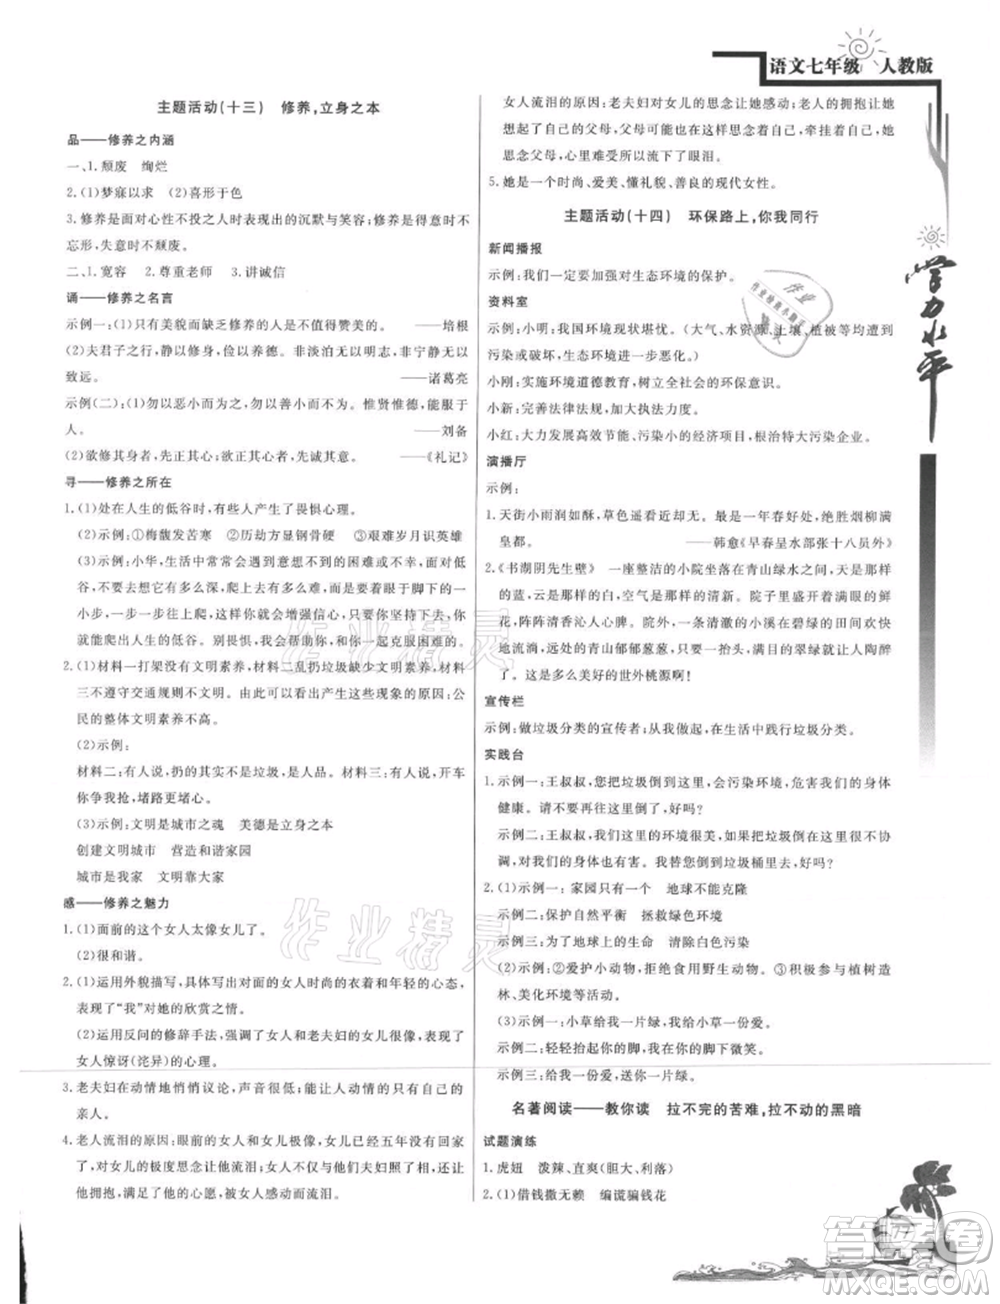 语文七年级 人教版
主题活动(十三) 修养,立身之本
品——修养之内涵
一、1. 颓废 绚烂
2. (1)梦寐以求 (2)喜形于色
3. 修养是面对心性不投之人时表现出的沉默与笑容;得意时不
忘形,失意时不颓废。
二、1. 宽容 2. 尊重老师 3. 讲诚信
诵——修养之名言
示例一:(1)只有美貌而缺乏修养的人是不值得赞美的。 ——培根
(2)夫君子之行,静以修身,俭以养德。非淡泊无以明志,非宁静无以
致远。 ——诸葛亮
示例(二):(1)勿以恶小而为之,勿以善小而不为。惟贤惟德,能服于
人。 ——刘备
(2)欲修其身者,先正其心;欲正其心者,先诚其意。 ——《礼记》
寻——修养之所在
1. (1)处在人生的低谷时,会产生畏惧心理。
(2)示例:①梅馥发苦寒 ②历劫方显钢骨硬 ③艰难岁月识英雄
(3)示例:小华,生活中常常会有坎坷,会有低谷,但是不要惧
怕,不要去想有多么深,爬上去有多么难,想到的应该是一小步
小步,一步一步往上爬,这样会增强信心,只要你坚持努力,你
就能爬出人生的低谷。别畏惧,我会帮助你,和你一起克服困难。
2. (1)材料一打架没有文明素养,材料二乱扔垃圾缺少文明素养,材料
三不遵守交通规则不文明。可以看出产生这些现象的原因:公
民的整体文明素养不高。
(2)示例:
材料二:有人说,扔的不是垃圾,是人品。材料三:有人说,开车
你争我抢,堵路更堵心。
(3)示例:文明是城市之魂 美德是立身之本
创建文明城市 营造和谐家园
城市是我家 文明靠大家
感——修养之魅力
1. (1)面前的这个女人太像女儿了。
(2)很和谐。
2. (1)运用外貌描写,描写出对面的女人时尚的衣着和年轻的心态,
表现了“我”对她的欣赏之情。
(2)运用反问的修辞手法,强调了女人和老夫妇的女儿很像,表现了
女人惊讶(诧异)的心理。
3. 老夫妇在动情地悄悄议论,声音很轻;能让人动情的只有自己的
亲人。
4. 老人流泪的原因:眼前的女人和女儿极像,女儿已经五年没有回家
了,对女儿的极度思念让他流泪;女人的善良让他感动,她还让
他拥抱,满足了他的心愿,被女人感动而流泪。
女人流泪的原因:老夫妇对女儿的思念让她感动;老人的拥抱让她
想起了自己的父母,父母可能也正在思念着自己,牵挂着自己,从而
思念父母,心里难受所以流下了眼泪。
5. 她是一个时尚、爱美、懂礼貌、善良的现代女性。
主题活动(十四) 环保路上,你我同行
新闻播报
示例:我们一定要加强对生态环境的保护。
资料室
示例:小明:我国环境现状堪忧。(大气、水资源、土壤、植被等均遭到
污染或破坏,生态环境进一步恶化。)
小刚:实施环境道德教育,树立全社会的环保意识。
小新:完善法律法规,加大执法力度。
小红:大力发展高效节能、污染小的经济项目,根治特大污染企业。
演播厅
示例:
1. 天街小雨润如酥,草色遥看近却无。最是一年春好处,绝胜烟柳满
皇都。 ——韩愈《早春呈水部张十八员外》
2.《书湖阴先生壁》 一座整洁的小院坐落在青山绿水之间,这里的天
蓝,云是那样的白,空气是那样的清新。院子里种植着许多的鲜
花,阵阵清香沁人心脾。院外,一条清澈的小溪在碧绿的田间欢快
地流淌,不远处的青山郁郁葱葱,满目的翠绿让这里更加令人陶醉
啊。这是多么美好的世外桃源啊!
宣传栏
示例:做垃圾分类的宣传者;从我做起,在生活中践行垃圾分类。
实践台
1. 示例一:王叔叔,您把垃圾扔到这里,会污染环境,危害我们的身体
健康。请不要再往这里扔了,好吗?
示例二:王叔叔,我们这里的环境很美,如果把垃圾倒在这里很不协
调,对我们的身体也有害。我帮您把垃圾倒在垃圾桶里去,好吗?
2. (1)示例一:家园只有一个 地球不能克隆
示例二:保护自然平衡 拯救绿色环境
示例三:为了地球上的生命 清除白色污染
(2)示例:①爱护小动物,拒绝食用野生动物。②积极参与植树造
林、美化环境等活动。
(3)示例一:小草给我一片绿,我给小草一份爱。
示例二:轻轻抬起你的脚,让我在你脚下微笑。
示例三:给我一份爱,还你一片绿。
名著阅读——教你读 拉不完的苦难,拉不动的黑暗
试题演练
1. 虎妞 泼辣、直爽(胆大、利落)
2. (1)借钱撒无赖 编谎骗钱花
学力水平
作业精灵
作业精灵
答案卷
MXQE.COM